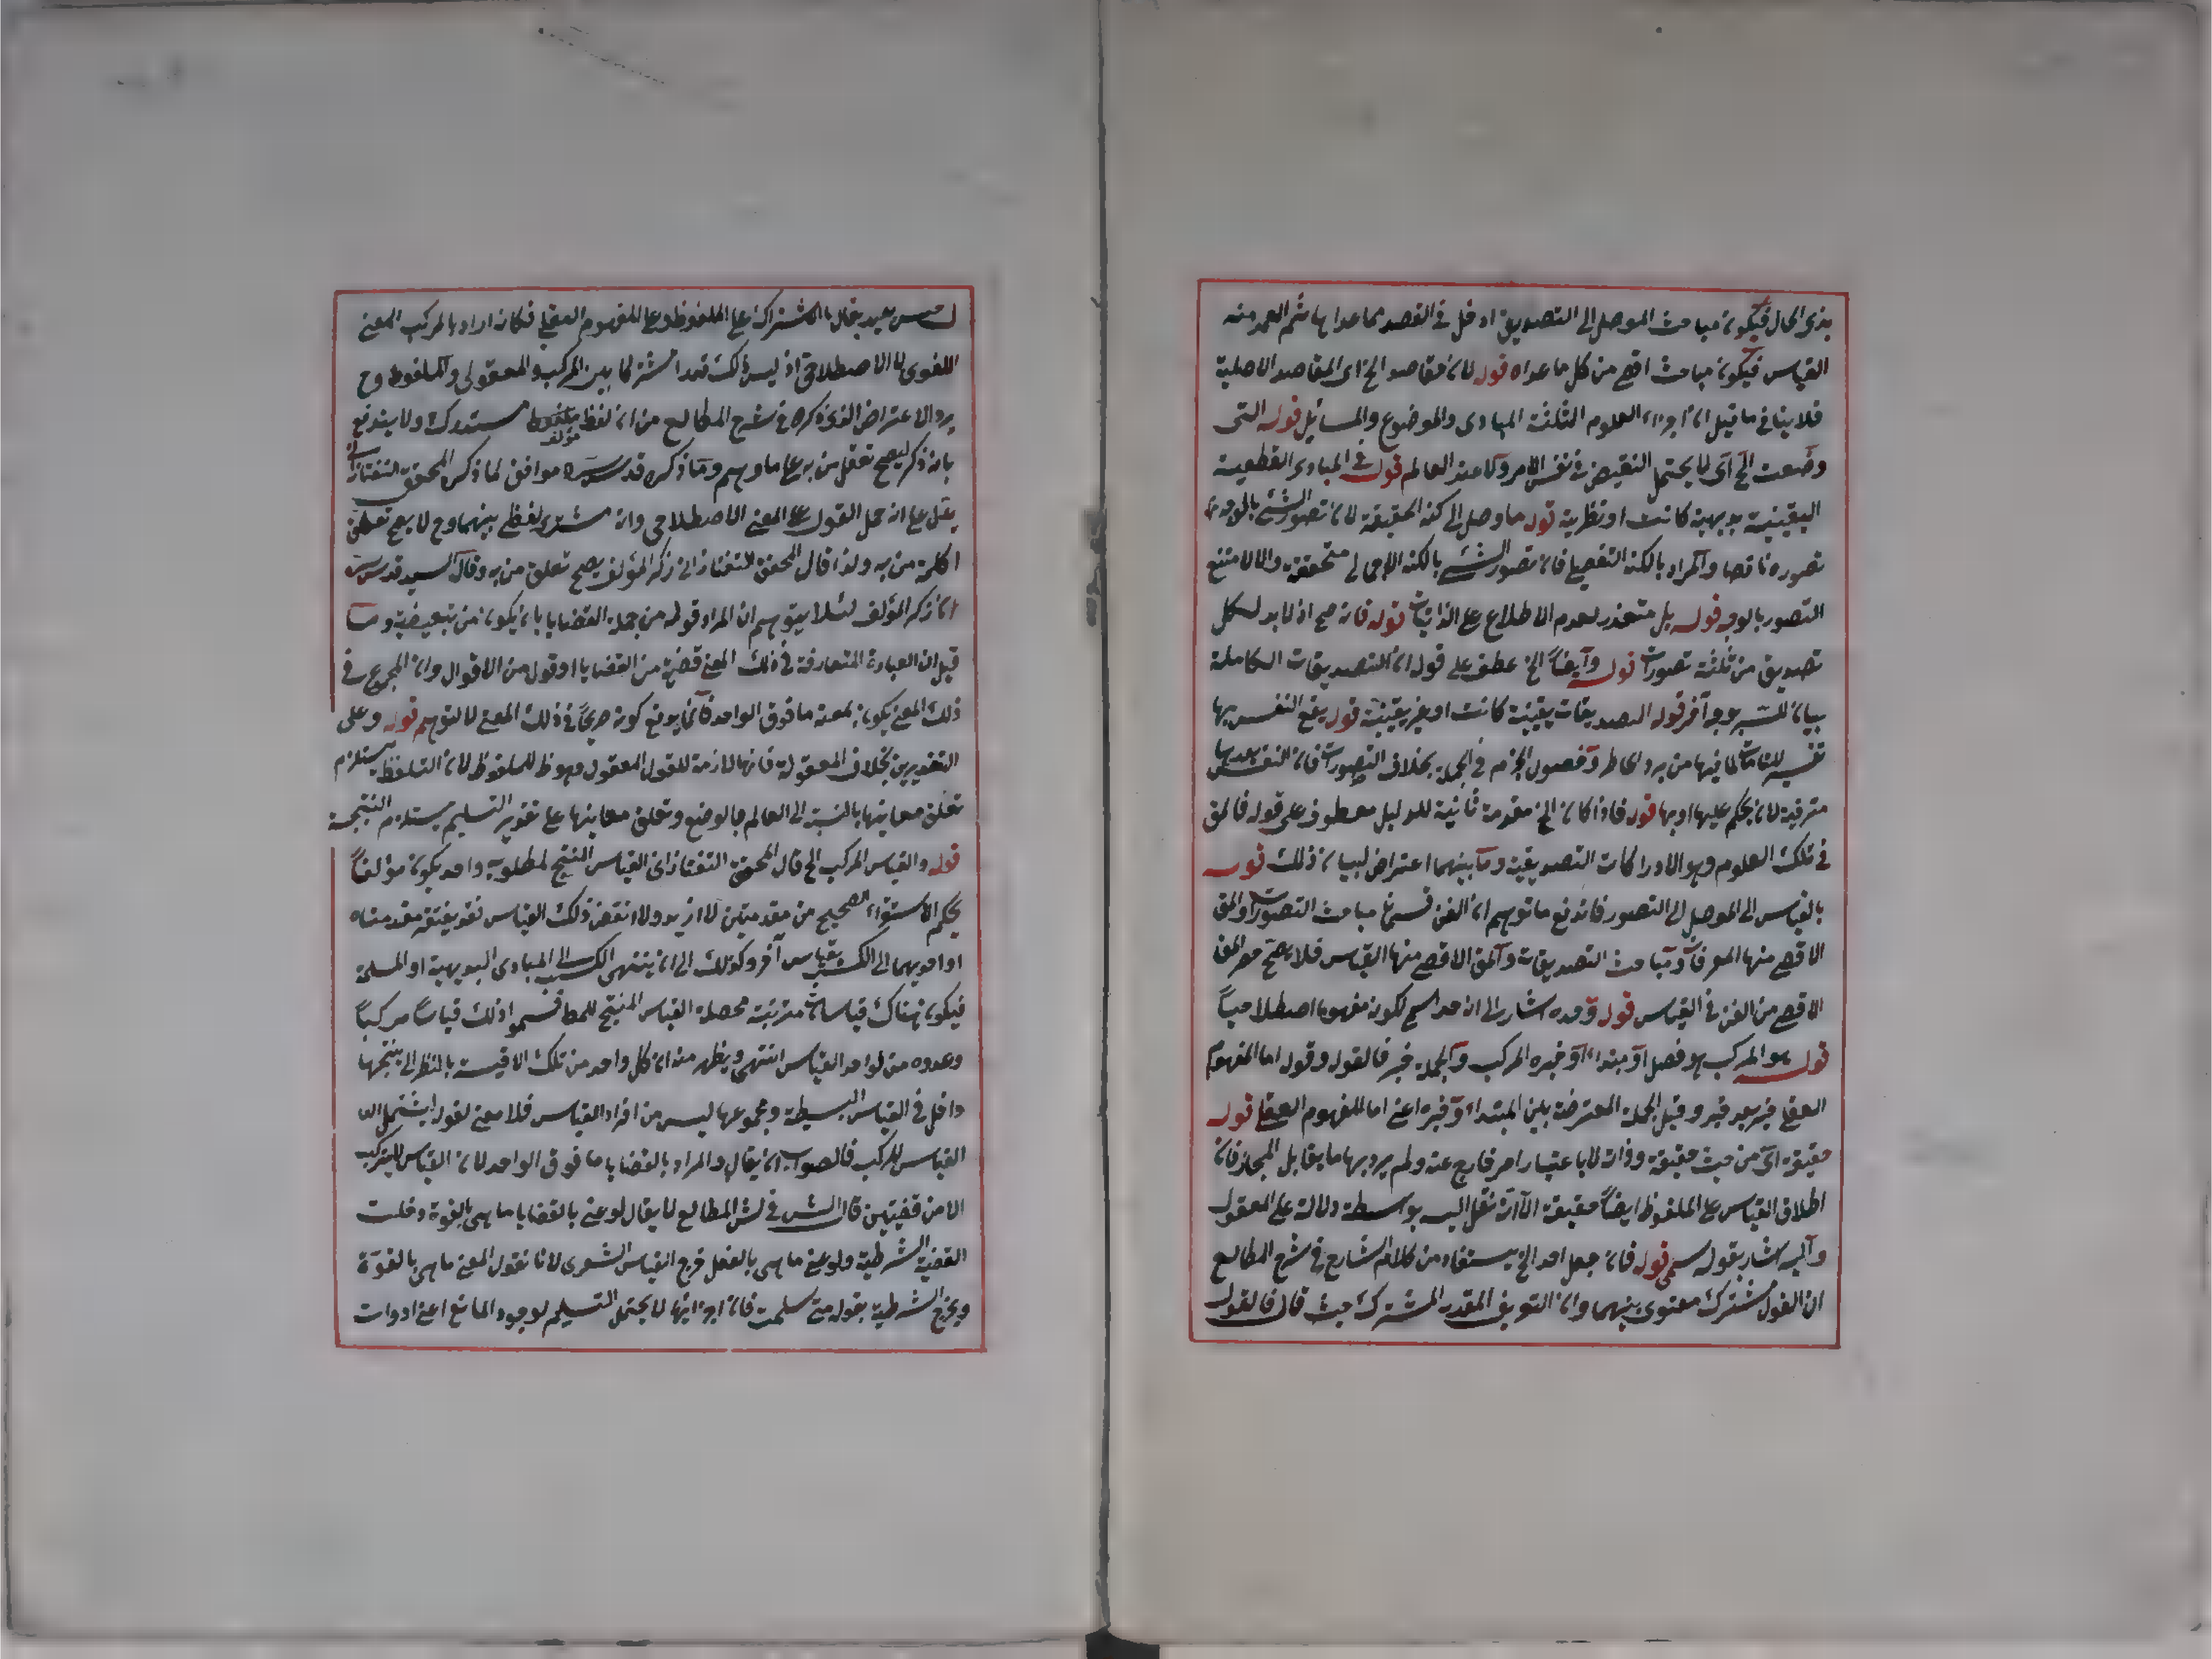 بذى الحال فيكون مباحث الموصل الى التصديق ادخل فى القصد مما عداها ثم العمد منه
القياس فيكون مباحث اقصى من كل ما عداه قوله لان مقاصد الخ اى المقاصد الاصلية
فلا ينافى ما قيل ان اجزاء العلوم الثلثة المبادى والموضوع والمسائل قوله التى
وضعت الخ اى لا يحتمل النقيض فى نفس الامر ولا عند العالم قوله فى المبادى القطعية
اليقينية بديهية كانت او نظرية قوله ما وصل الى كنه الحقيقة لان تصور الشئ بالوجه
تصوره ناقصا والمراد بالكنه التفصيلى فان تصور الشئ بالكنه الاجمالى متحققة والا لامتنع
التصور بالوجه قوله بل متعذر لعدم الاطلاع على الذاتيات قوله فانه صح اذ لا بد لكل
تصديق من ثلثة تصورات قوله وايضا الخ عطف على قوله ان التصديقات الكاملة
بيان لشبه بوجه آخر قوله التصديقات يقينية كانت او غير يقينية قوله يقع النفس بها
لما فيها من برد الخاطر وحصول الجزم فى الجملة بخلاف التصورات فان النفس بعدها
مترقبة لان يحكم عليها او بها قوله فاذا كان الخ مقدمة ثانية للدليل معطوف على قوله فالمق
فى تلك العلوم وهو الادراكات التصديقية وما بينهما اعتراض لبيان ذلك قوله
بالقياس الى الموصل الى التصور فاندفع ما توهم ان الفن قسمان مباحث التصورات والمق
الاقصى منها المعرفات ومباحث التصديقات والمق الاقصى منها القياس فلا يصح حصر المق
الاقصى من الفن فى القياس قوله وحده اشار الى ان حد اسمى لكونه مفهوما اصطلاحيا
قوله هو المركب هو فصل او مبتداء او خبره المركب والجملة خبر فالقول وقوله اما المفهوم
العقلى خبر بعد خبر وقيل الجملة المعترضة بين المبتداء وخبره اعنى اما المفهوم العقلى قوله
حقيقة اى من حيث حقيقة وذاته لا باعتبار امر خارج عنه ولم يرد بها ما يقابل المجاز فان
اطلاق القياس على الملفوظ ايضا حقيقة الا انه نقل اليه بواسطة دلالته على المعقول
واليه اشار بقوله سمى قوله فان جعل احد الخ يستفاد من كلام الشارح فى شرح المطالع
ان القول مشترك معنوى بينهما وان التعريف المقدر المشترك حيث قال فالقول
ليس بعيد يقال بالاشتراك على الملفوظ وعلى المفهوم العقلى فكانه اراد بالمركب المعنى
اللغوى لا الاصطلاحى اذ ليس ذلك قدرا مشتركا بين المركب والمعقول والملفوظ وح
يرد الاعتراض الذى ذكره فى شرح المطالع من ان لفظ مؤلف مستدرك ولا يندفع
بانه ذكر ليصح تعقل من به على ما وهم وما ذكره قدس سره موافق لما ذكر المحقق التفتازانى
على انه حمل القول على المعنى الاصطلاحى وانه مشترك لفظى بينهما وح لا يصح تعلق
كلمة من به ولذا قال المحقق التفتازانى ذكر المؤلف يصح تعلق من به وقال السيد قدس سره
ان ذكر المؤلف لئلا يتوهم ان المراد قوله من جملة القضايا بان يكون من تبعيضية وما
قيل ان العبارة المتعارفة فى ذلك المعنى قضية من القضايا او قول من الاقوال وان المجموع فى
ذلك المعنى يكون بمعنى ما فوق الواحد فانما يدفع كونه صريحا فى ذلك المعنى لا التوهم قوله وعلى
التقديرين بخلاف المعقولة فانها لازمة للقول المعقول وهو ظ للملفوظ لان التلفظ يستلزم
تعلق معانيها بالنسبة الى العالم بالوضع وتعلق معانيها على تقدير التسليم يستلزم النتيجة
قوله والقياس المركب الخ قال المحقق التفتازانى القياس المنتج لمطلوبه واحد يكون مؤلفا
بحكم الاستقراء الصحيح من مقدمتين لا ازيد ولا انقص ذلك القياس قد يفتقر مقدمتاه
او احديهما الى الكسب بقياس آخر وكذلك الى ان ينتهى الكسب الى المبادى البديهية او المسلمة
فيكون هناك قياسات مترتبة محصلة القياس المنتج للمط فسموا ذلك قياسا مركبا
وعدوه من لواحد القياس انتهى ويظهر منه ان كل واحد من تلك الاقيسة بالنظر الى نتيجتها
داخل فى القياس البسيطة ومجموعها ليس من افراد القياس فلا معنى لقوله ليشتمل
القياس المركب فالصواب ان يقال والمراد بالقضايا ما فوق الواحد لان القياس لا يتركب
الا من قضيتين قال الش فى شرح المطالع لا يقال لو عنى بالقضايا ما هى بالقوة دخلت
القضية الشرطية ولو عنى ما هى بالفعل خرج القياس الشعرى لانا نقول المعنى ما هى بالقوة
ويخرج الشرطية بقوله متى سلمت فان اجزائها لا يحتمل التسليم لوجود المانع اعنى ادوات